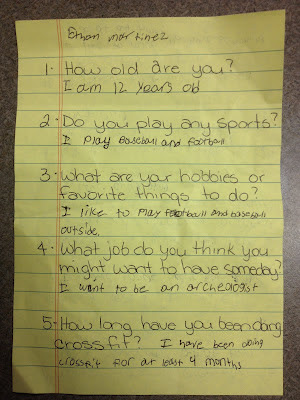 Ethan martinez
1. How old are you?
I am 12 years old
2. Do you play any sports?
I play baseball and football
3. What are your hobbies or
favorite things to do?
I like to play football and baseball
outside.
4. What job do you think you
might want to have someday?
I want to be an archeologist
5. How long have you been doing
crossfit? I have been doing
crossfit for at least 4 months